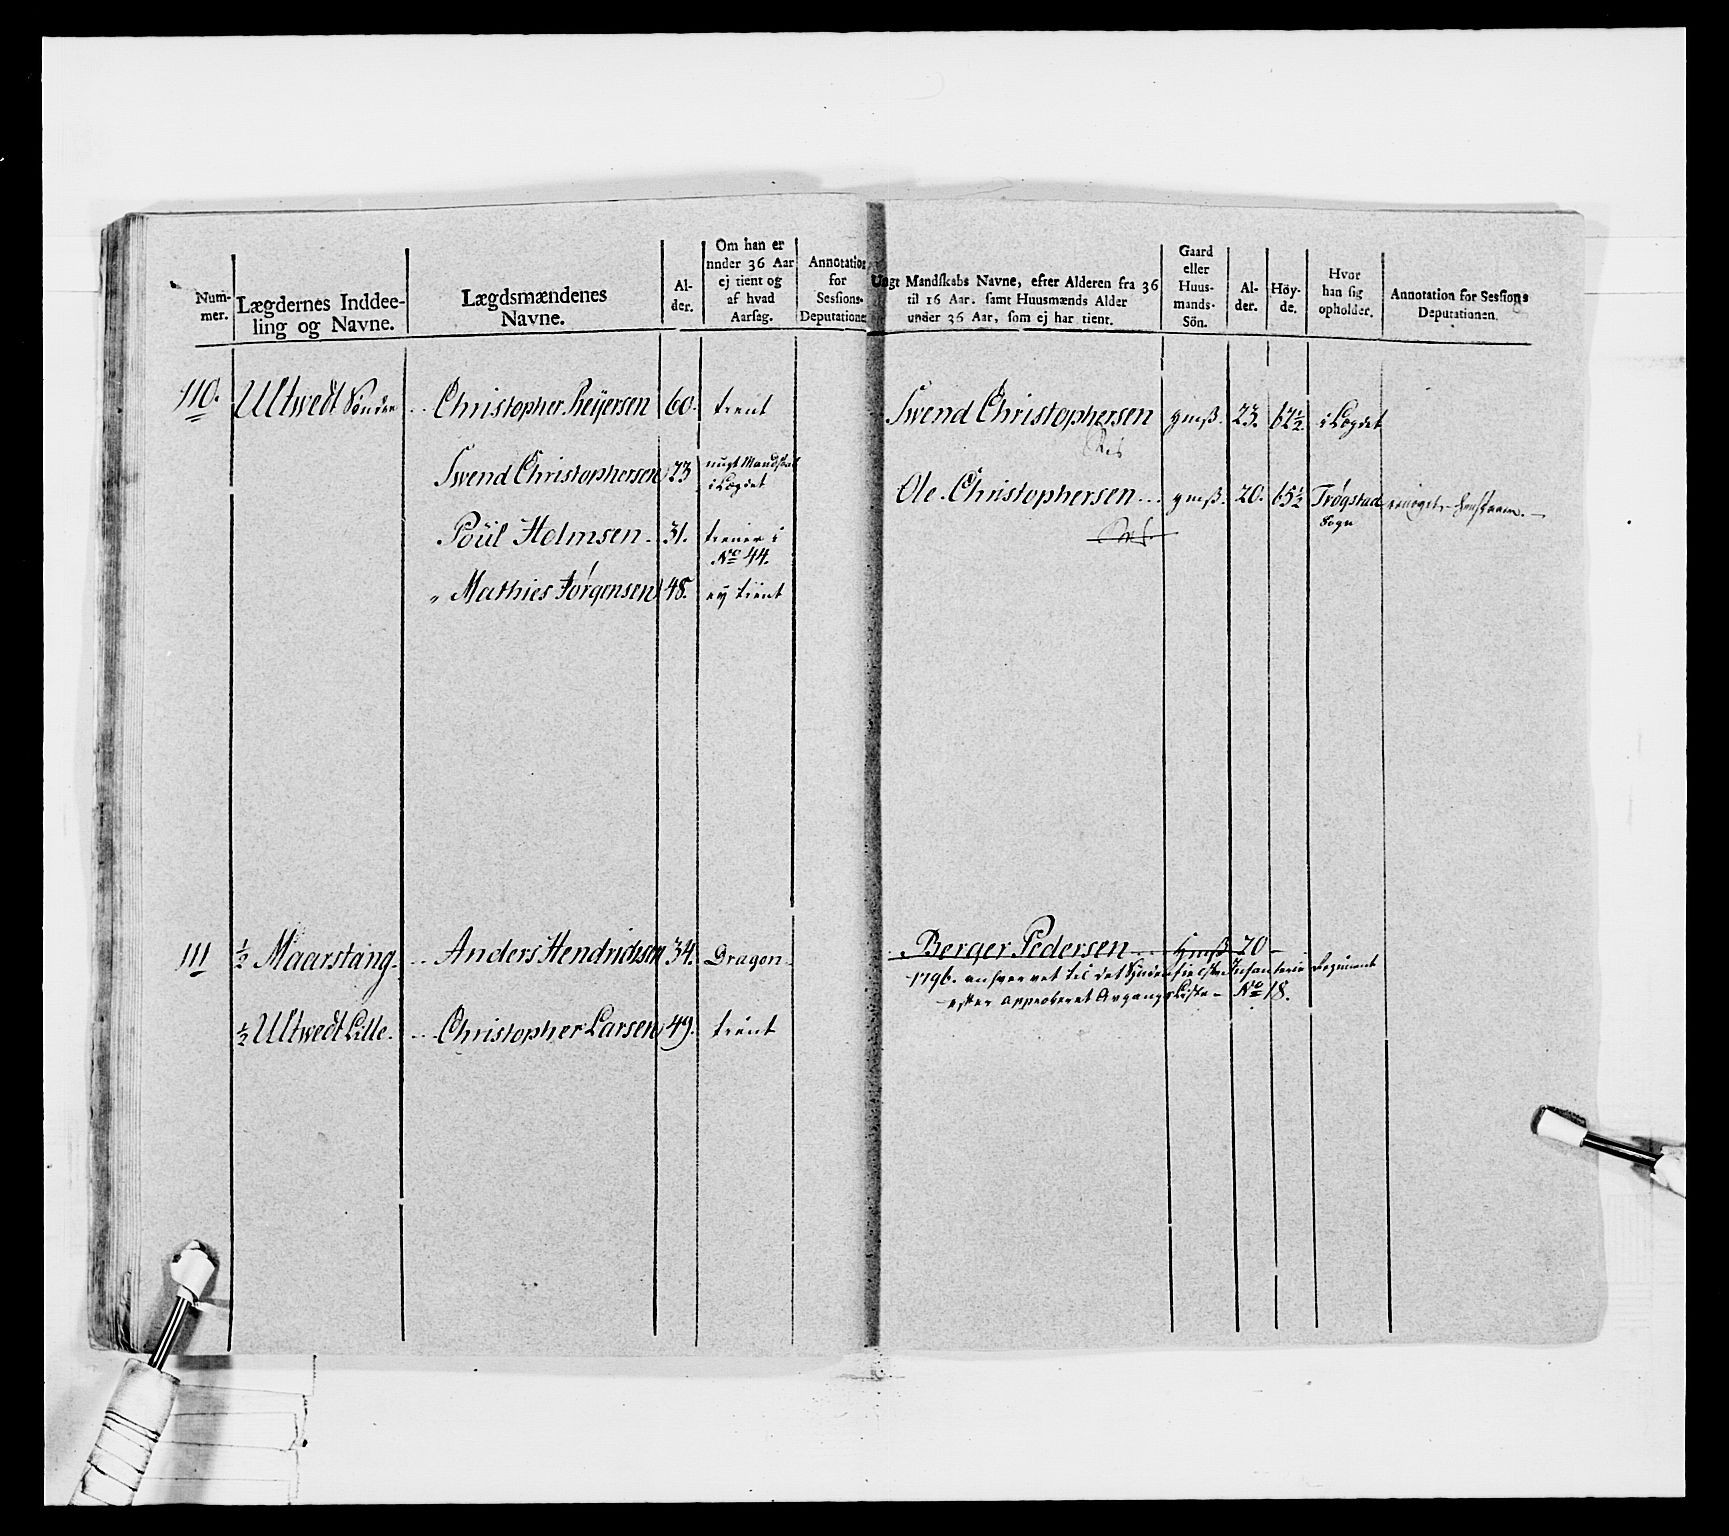 Num-
mer.
Lægdernes Inddee-
ling og Navne.
Lægdsmændenes
Navne.
Al-
der.
Om han er
under 36 Aar
ej tient og
af hvad
Aarsag.
Annotation
for
Sessions-
Deputatione
Ungt Mandskabs Navne, efter Alderen fra 36
til 16 Aar. samt Huusmænds Alder
under 36 Aar, som ej har tient.
Gaard
eller
Huus-
mands-
Sön.
Al-
der.
Höy-
de.
Hvor
han sig
opholder.
Annotation for Sessions
Deputationen.
110. Ultwedt Sönder Christopher Reijersen 60. tient
Swend Christophersen gmß. 23. 62½ i Lægdet
Swend Christophersen 23 ungt Mandskab
i Lægdet
Ole Christophersen gmß. 20. 65½ Trøgstad
Sogn
Poül Holmsen 31. tiener i
No 44.
Mathies Jørgensen 48. ey tient
111 ½ Maarstang Anders Hendrichsen 34. Dragon
Berger Pedersen Hmß 20
1796. anhvervet til det Infanterie Regiment
efter approberet Avgangs Liste No 18.
½ Ultwedt Lille Christopher Larsen 49. tient